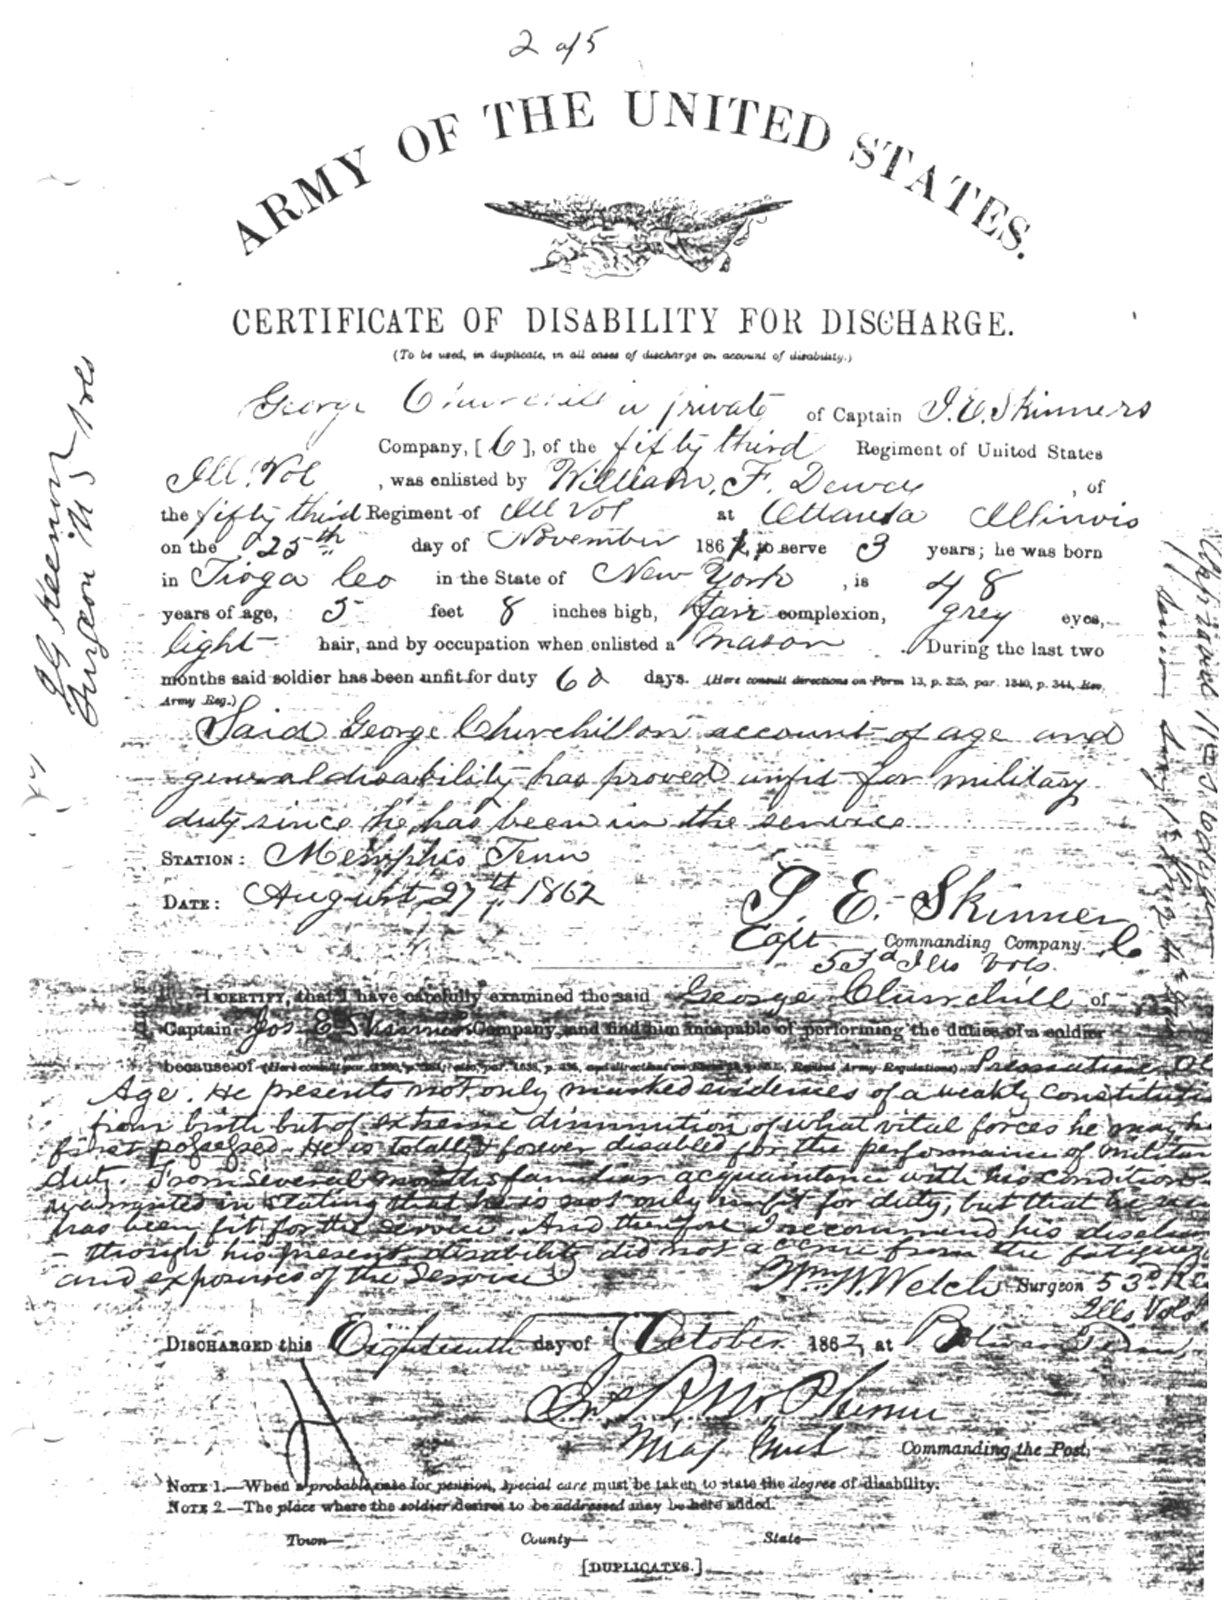 2 of 5
ARMY OF THE UNITED STATES.
CERTIFICATE OF DISABILITY FOR DISCHARGE.
(To be used, in duplicate, in all cases of discharge on account of disability.)
George Churchill a private of Captain J. E. Skinners
Company, [C], of the fifty third Regiment of United States
Ill. Vol , was enlisted by William. F. Dewey , of
the fifty third Regiment of Ill Vol at Ottawa Illinois
on the 25th day of November 186 , to serve 3 years; he was born
in Tioga Co in the State of New York , is 48
years of age, 5 feet 8 inches high, fair complexion, grey eyes,
light hair, and by occupation when enlisted a mason . During the last two
months said soldier has been unfit for duty 60 days. (Here consult directions on Form 13, p. 325, par. 1340, p. 344, Rev.
Army Reg.)
Said George Churchill on account of age and
general disability has proved unfit for military
duty since he has been in the service
STATION: Memphis Tenn
DATE: August 27th, 1862
J. E. Skinner
Capt Commanding Company. C
53d Ills Vols.
I CERTIFY, that I have carefully examined the said George Churchill of
Captain Jos E Skinner Company, and find him incapable of performing the duties of a soldier
because of (Here consult par. Revised Army Regulations) Premature Ol
Age. He presents not only marked evidences of a weakly Constituti
from birth but of extreme diminution of what vital forces he may h
first possessed. He is totally & forever disabled for the performance of militar
duty. From several months familiar acquaintance with his condition
warranted in stating that he is not only unfit for duty, but that he
has been fit for the service. And therefore I recommend his dischar
– though his present disability did not accrue from the fatigues
and exposures of the Service
Wm. W. Welch Surgeon 53d Re
Ills Vols
DISCHARGED this Eighteenth day of October 1862, at Bolivar Tenn
Jno McPhinn
Maj Commanding the Post.
NOTE 1.—When a probable case for pension, special care must be taken to state the degree of disability.
NOTE 2.—The place where the soldier desires to be addressed may be here added.
Town— County— State—
[DUPLICATES.]
Surgeon U S Vols
Approved